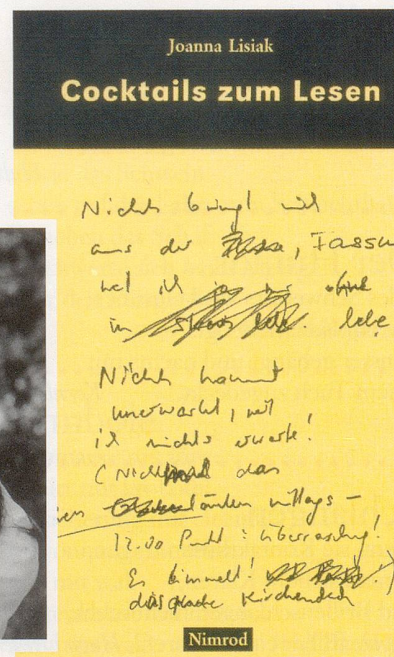 Joanna Lisiak
Cocktails zum Lesen
Nichts bringt mich
aus der Fassu
weil ich
in lebe
Nichts kommt
unerwartet, weil
ich nichts erwarte!
das
mittags -
12.00 Punkt : Überraschung!
Es bimmelt!
Nimrod